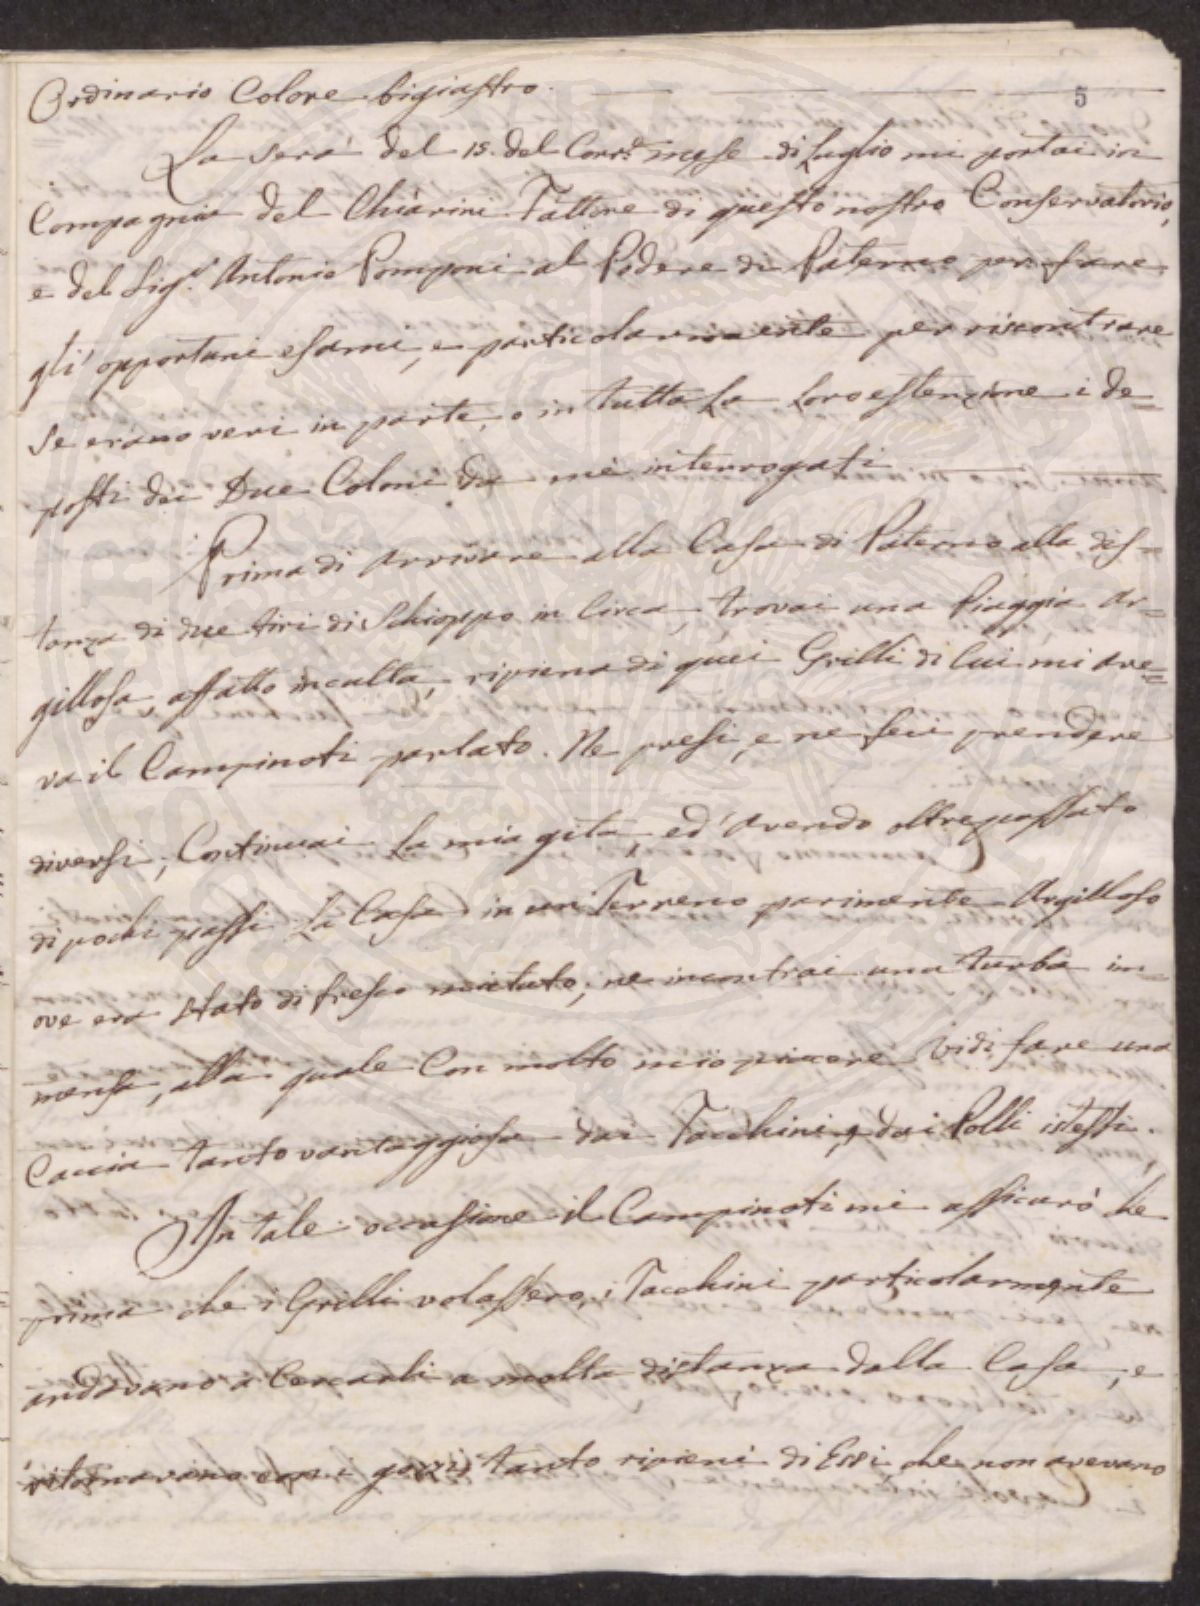 5
Ordinario Colore bigiastro.
La sera del 15. del Corr.e mese di Luglio mi portai in
Compagnia del Chiarini Fattore di questo nostro Conservatorio,
e del Sig.r Antonio Pomponi al Podere di Paterno per fare
gli opportuni esami, e particolarmente per riscontrare
se erano veri in parte, o in tutta La Loro estenzione i de=
posti dei Due Coloni da me interrogati
Prima di Arrivare alla Casa di Paterno alla dis=
tanza di due tiri di Schioppo in Circa, trovai una Piaggia Ar=
gillosa, affatto inculta, ripiena di quei Grilli di Cui mi Ave=
va il Campinoti parlato. Ne presi, e ne feci prendere
diversi; Continuai La mia gita, ed Avendo oltrepassato
di pochi passi La Casa in un Terreno parimente Argilloso
ove era stato di fresco mietuto, ne incontrai una turba im=
mensa, alla quale Con molto mio piacere Vidi fare una
Caccia tanto vantaggiosa dai Tacchini, e dai Polli istessi.
In tale occasione il Campinoti mi assicurò che
prima che i Grilli volassero, i Tacchini particolarmente
andavano a Cercarli a molta distanza dalla Casa, e
ritornavano con i gozzi tanto ripieni di Essi, che non avevano